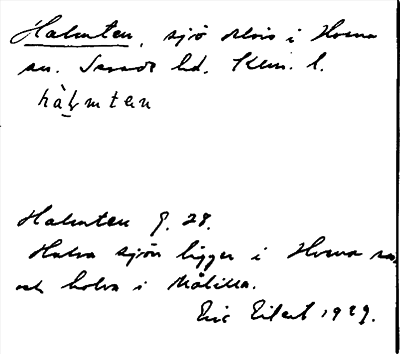 Halmten, sjö delvis i Hvena
sn. Sevede hd. Klm. l.
hàlmten
Halmten G. 28.
Halva sjön ligger i Hvena sn.
och halva i Målilla.
Eric Eilert 1929.